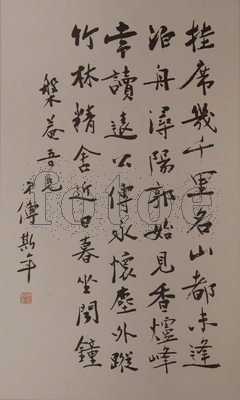 挂席幾千里名山都未逢
泊舟潯陽郭始見香爐峰
常讀遠公傳永懷塵外蹤
竹林精舍近日暮坐聞鐘
槃菴吾兄
弟傅斯年
fotoe